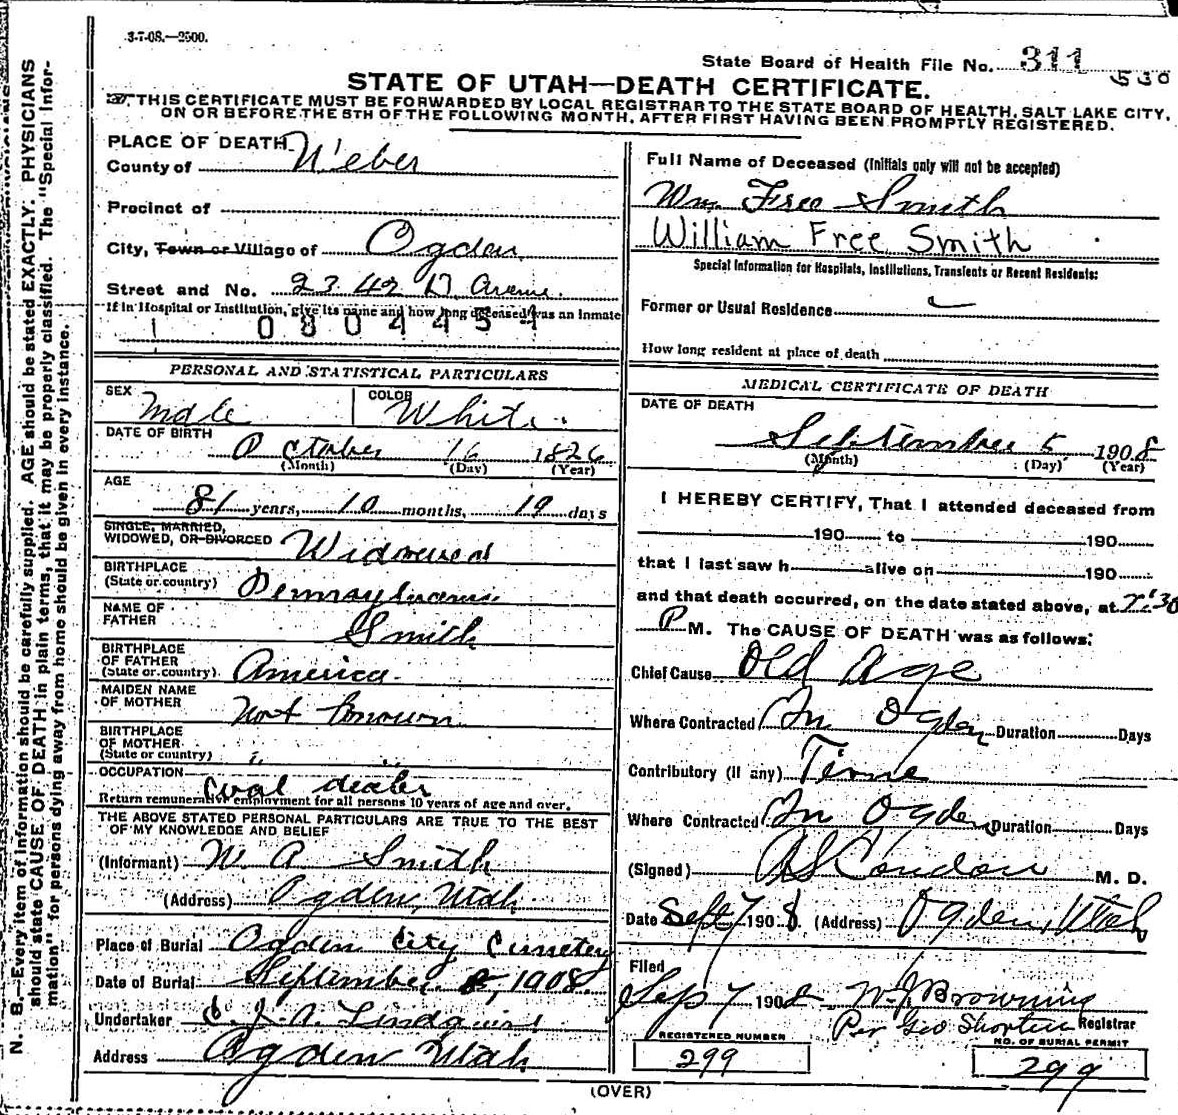 3-7-08.—2500.
State Board of Health File No. 311
530
STATE OF UTAH—DEATH CERTIFICATE.
THIS CERTIFICATE MUST BE FORWARDED BY LOCAL REGISTRAR TO THE STATE BOARD OF HEALTH, SALT LAKE CITY,
ON OR BEFORE THE 5TH OF THE FOLLOWING MONTH, AFTER FIRST HAVING BEEN PROMPTLY REGISTERED.
N. B.—Every item of information should be carefully supplied. AGE should be stated EXACTLY. PHYSICIANS
should state CAUSE OF DEATH in plain terms, that it may be properly classified. The "Special Infor-
mation" for persons dying away from home should be given in every instance.
PLACE OF DEATH
County of Weber
Precinct of
City, Town or Village of Ogden
Street and No. 2342 Avenue
If in Hospital or Institution, give its name and how long deceased was an inmate
0804451
PERSONAL AND STATISTICAL PARTICULARS
SEX Male COLOR White
DATE OF BIRTH October 16 1826
(Month) (Day) (Year)
AGE 81 years, 10 months, 19 days
SINGLE, MARRIED,
WIDOWED, OR DIVORCED Widowed
BIRTHPLACE
(State or country) Pennsylvania
NAME OF
FATHER Smith
BIRTHPLACE
OF FATHER
(State or country) America
MAIDEN NAME
OF MOTHER Not Known
BIRTHPLACE
OF MOTHER
(State or country) " "
OCCUPATION Coal dealer
Return remunerative employment for all persons 10 years of age and over.
THE ABOVE STATED PERSONAL PARTICULARS ARE TRUE TO THE BEST
OF MY KNOWLEDGE AND BELIEF
(Informant) W A Smith
(Address) Ogden, Utah
Place of Burial Ogden City Cemetery
Date of Burial September 8, 1908.
Undertaker Lindquist
Address Ogden Utah
Full Name of Deceased (Initials only will not be accepted)
Wm Free Smith
William Free Smith
Special Information for Hospitals, Institutions, Transients or Recent Residents:
Former or Usual Residence
How long resident at place of death
MEDICAL CERTIFICATE OF DEATH
DATE OF DEATH
September 5 1908
(Month) (Day) (Year)
I HEREBY CERTIFY, That I attended deceased from
190 to 190
that I last saw h alive on 190
and that death occurred, on the date stated above, at 7:30
P M. The CAUSE OF DEATH was as follows:
Chief Cause Old Age
Where Contracted In Ogden Duration Days
Contributory (if any) Time
Where Contracted In Ogden Duration Days
(Signed) A S Condon M. D.
Date Sept 7 1908 (Address) Ogden, Utah
Filed
Sep 7 1908 W J Browning
Per Geo Shorten Registrar
REGISTERED NUMBER NO. OF BURIAL PERMIT
299 299
(OVER)